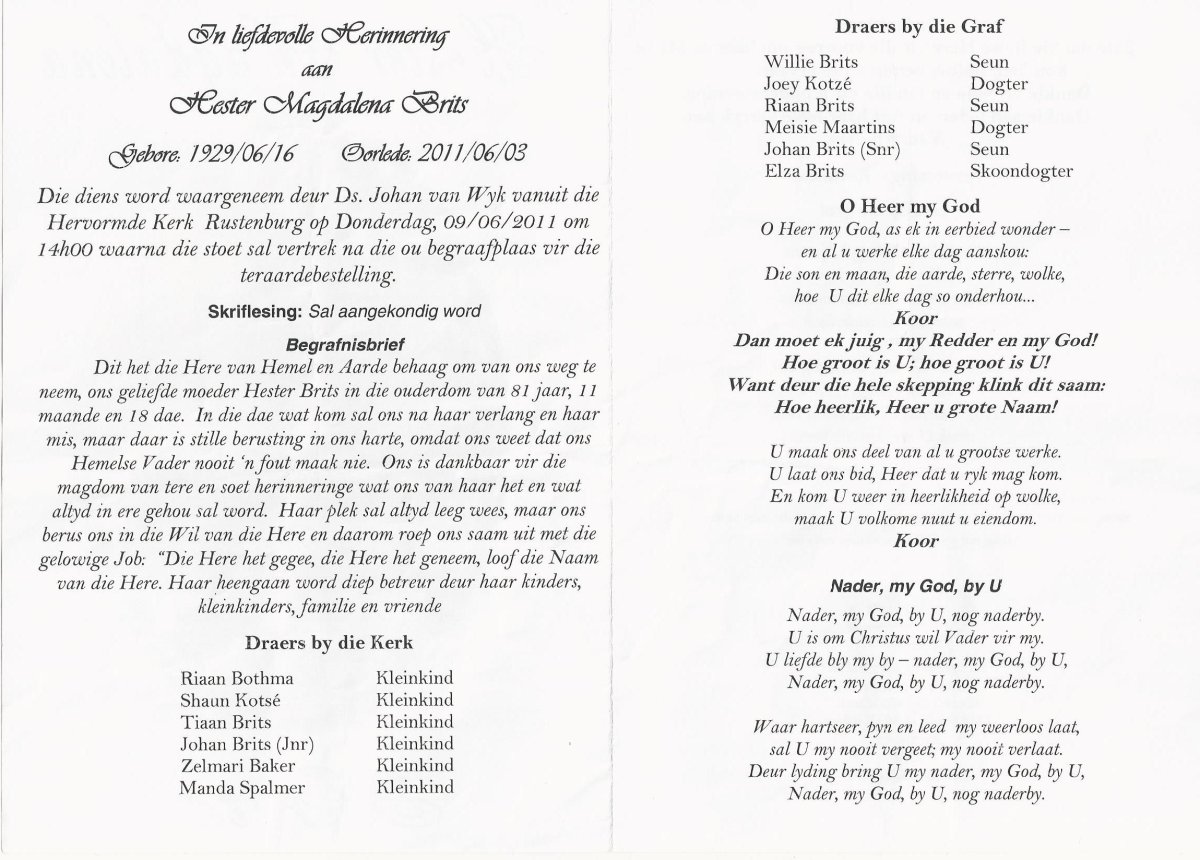 In liefdevolle Herinnering
aan
Hester Magdalena Brits
Gebore: 1929/06/16 Oorlede: 2011/06/03
Die diens word waargeneem deur Ds. Johan van Wyk vanuit die
Hervormde Kerk Rustenburg op Donderdag, 09/06/2011 om
14h00 waarna die stoet sal vertrek na die ou begraafplaas vir die
teraardebestelling.
Skriflesing: Sal aangekondig word
Begrafnisbrief
Dit het die Here van Hemel en Aarde behaag om van ons weg te
neem, ons geliefde moeder Hester Brits in die ouderdom van 81 jaar, 11
maande en 18 dae. In die dae wat kom sal ons na haar verlang en haar
mis, maar daar is stille berusting in ons harte, omdat ons weet dat ons
Hemelse Vader nooit ‘n fout maak nie. Ons is dankbaar vir die
magdom van tere en soet herinneringe wat ons van haar het en wat
altyd in ere gehou sal word. Haar plek sal altyd leeg wees, maar ons
berus ons in die Wil van die Here en daarom roep ons saam uit met die
gelowige Job: “Die Here het gegee, die Here het geneem, loof die Naam
van die Here. Haar heengaan word diep betreur deur haar kinders,
kleinkinders, familie en vriende
Draers by die Kerk
Riaan Bothma Kleinkind
Shaun Kotsé Kleinkind
Tiaan Brits Kleinkind
Johan Brits (Jnr) Kleinkind
Zelmari Baker Kleinkind
Manda Spalmer Kleinkind
Draers by die Graf
Willie Brits Seun
Joey Kotzé Dogter
Riaan Brits Seun
Meisie Maartins Dogter
Johan Brits (Snr) Seun
Elza Brits Skoondogter
O Heer my God
O Heer my God, as ek in eerbied wonder –
en al u werke elke dag aanskou:
Die son en maan, die aarde, sterre, wolke,
hoe U dit elke dag so onderhou...
Koor
Dan moet ek juig , my Redder en my God!
Hoe groot is U; hoe groot is U!
Want deur die hele skepping klink dit saam:
Hoe heerlik, Heer u grote Naam!
U maak ons deel van al u grootse werke.
U laat ons bid, Heer dat u ryk mag kom.
En kom U weer in heerlikheid op wolke,
maak U volkome nuut u eiendom.
Koor
Nader, my God, by U
Nader, my God, by U, nog naderby.
U is om Christus wil Vader vir my.
U liefde bly my by – nader, my God, by U,
Nader, my God, by U, nog naderby.
Waar hartseer, pyn en leed my weerloos laat,
sal U my nooit vergeet; my nooit verlaat.
Deur lyding bring U my nader, my God, by U,
Nader, my God, by U, nog naderby.